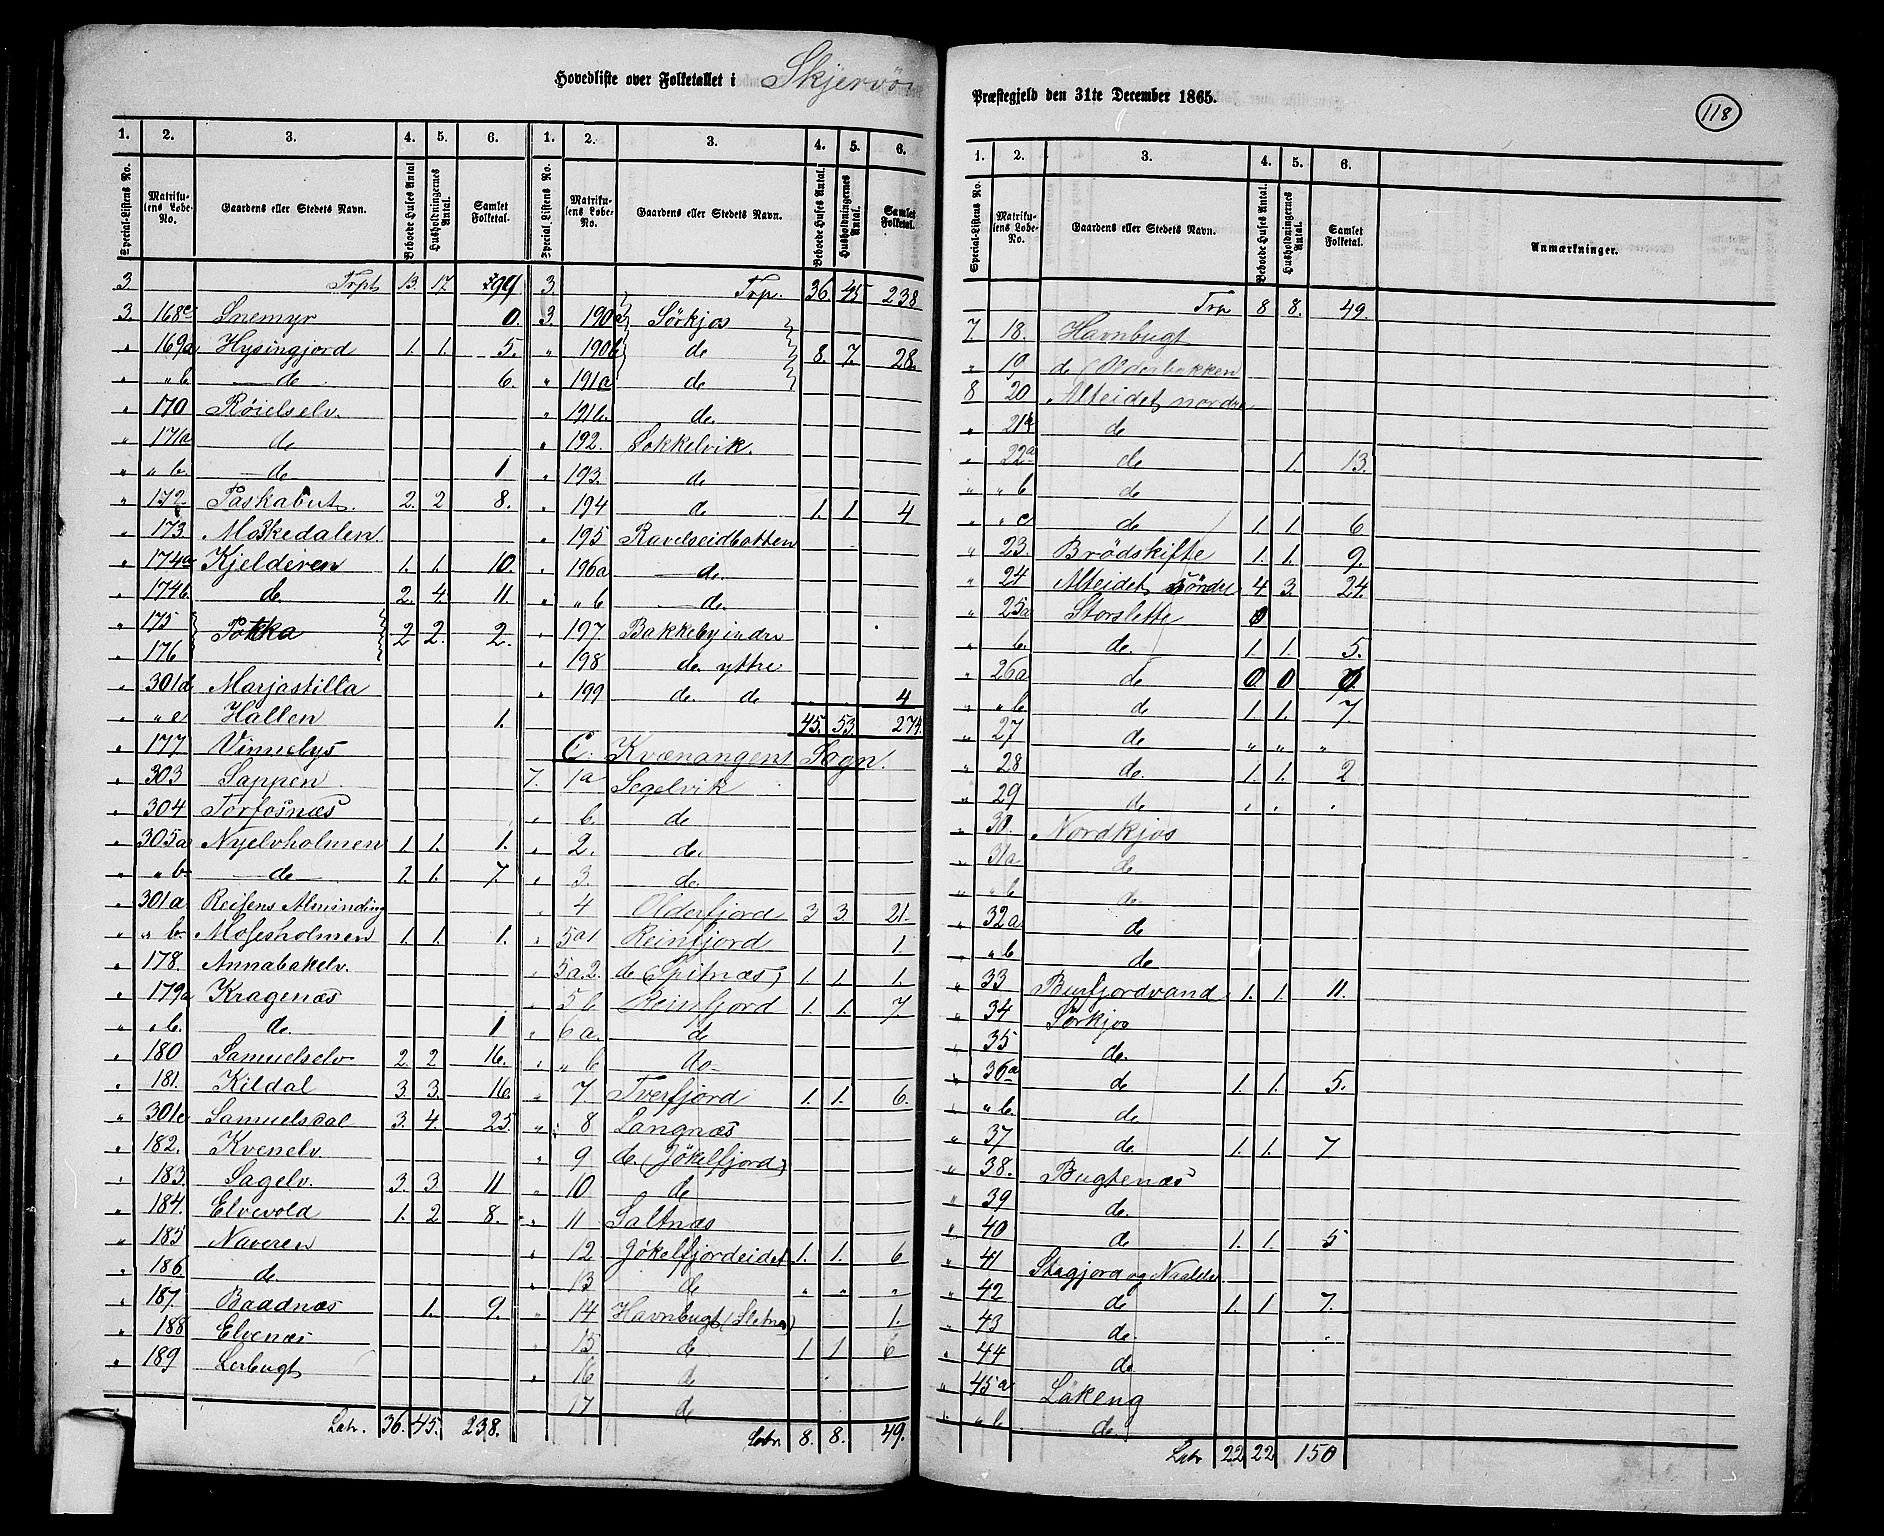 Hovedliste over Folketallet i Skjervö
Præstegjeld den 31te December 1865.
118
1. 2. 3. 4. 5. 6.
Special-Listens No. Matrikulens Løbe-No. Gaardens eller Stedets Navn. Beboede Huses Antal Husholdningernes Antal. Samlet Folketal.
3 Trpt 13. 17.
3. 168c Snemyr 0.
„ 169a Hysingjord 1. 1. 5.
„ „ b de 6.
„ 170 Röielselv.
„ 171a de
„ „ b. de 1
„ 172 Paskabut 2. 2 8.
„ 173. Moskedalen
„ 174a Kjelderen 1. 1. 10.
„ 174b de. 2. 4. 11.
„ 175 Pokka 2 2. 2.
„ 176
„ 301d Marjastilla
„ „ e Hallen 1.
„ 177 Vinnelys
„ 303 Sappen
„ 304 Torfosnæs
„ 305a Nyelvholmen 1. 1. 1.
„ „ b. de 1. 1. 7.
„ 301a Reisens Alminding
„ „ b. Mosesholmen 1. 1. 1.
„ 178. Annabakelv.
„ 179a Kragenæs
„ „ b. de 1
„ 180 Samuelselv 2. 2 16.
„ 181. Kildal 3. 3. 16.
„ 301c Samuelsdal 3. 4. 25.
„ 182. Kvenelv.
„ 183. Sagelv. 3. 3. 11
„ 184. Elvevold 1. 2 8.
„ 185 Naveren
„ 186. de
„ 187. Baadnæs 1. 9.
„ 188 Elvenæs
„ 189 Lerbugt
Latr. 36. 45. 238.
1. 2. 3. 4. 5. 6.
Special-Listens No. Matrikulens Løbe-No. Gaardens eller Stedets Navn. Beboede Huses Antal. Husholdningernes Antal. Samlet Folketal.
3. Trp. 36 45 238
3. 190a Sörkjos
„ 190b de 8. 7. 28.
„ 191a de
„ 191b. de.
„ 192. Sokkelvik.
„ 193. de
„ 194 de 1. 1 4
„ 195 Ravelseidbotten
„ 196a de.
„ „ b de.
„ 197 Bakkeby indre
„ 198 de. yttre
„ 199 de. de 4
45. 53. 274.
C. Kvænangens Sogn.
7. 1a Segelvik
„ b de
„ 2. de.
„ 3. de.
„ 4 Olderfjord 3 3. 21.
„ 5a1 Reinfjord 1.
„ 5a.2. de (Spitnæs) 1. 1. 1.
„ 5b Reinfjord 1. 1. 7
„ 6a. de
„ „ b do
„ 7 Tverfjord 1. 1. 6.
„ 8 Langnæs
„ 9 de. (Jökelfjord)
„ 10 de
„ 11 Saltnæs
„ 12 Jökelfjordeidet 1. 1. 6
„ 13 de „ „ „
„ 14 Havnbugt (Sletnæs) 1.
„ 15 de 1 1 6
„ 16 de
17 de
Latr 8. 8. 49.
1. 2. 3. 4. 5. 6.
Special-Listens No. Matrikulens Løbe-No. Gaardens eller Stedets Navn. Beboede Huses Antal. Husholdningernes Antal. Samlet Folketal. Anmærkninger.
Trp 8 8. 49.
7. 18. Havnbugt
„ 19 de (Olderbakken
8 20 Alteidet nordre
„ de
„ 22a de 1. 13.
„ „ b de
„ „ c de 1. 1. 6
„ 23. Brödskifte 1. 1. 9.
„ 24 Alteidet söndre 4 3. 24.
„ 25a Storslette 0
„ b. de. 1. 1. 5.
„ 26a de 0 0
„ „ b de 1. 1. 7
„ 27 de „ „ „
„ 28 de 1. 1. 2
„ 29 de
„ 30. Nordkjos
„ 31a de
„ „ b de
„ 32a de
„ „ b de
„ 33 Burfjordvand 1. 1. 11.
„ 34 Sörkjos
„ 35 de.
„ 36a de 1. 1. 5.
„ „ b. de
„ 37 de. 1. 1. 7
„ 38. Bugtenæs
„ 39 de.
„ 40 de 1. 1. 5
„ 41 Stagjord og
„ 42 de 1. 1 7.
„ 43 de.
„ 44 de
„ 45a Läkeng
„ „ b de
Latr 22 22 150